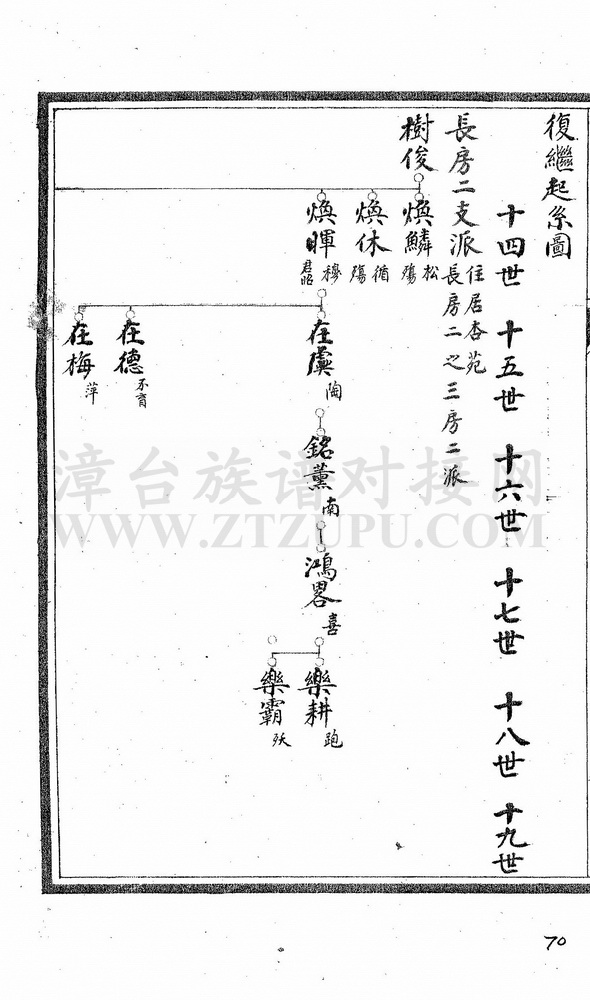 復繼起系圖
十四世 十五世 十六世 十七世 十八世 十九世
長房二支派
住居杏苑
長房二之三房二派
樹俊
煥鱗 松 殤
煥休 循 殤
煥暉 穆 君昭
在虞 陶
在德 不育
在梅 萍
銘薰 南
鴻畧 喜
樂耕 跑
樂霸 殀
漳台族谱对接网
WWW.ZTZUPU.COM
70